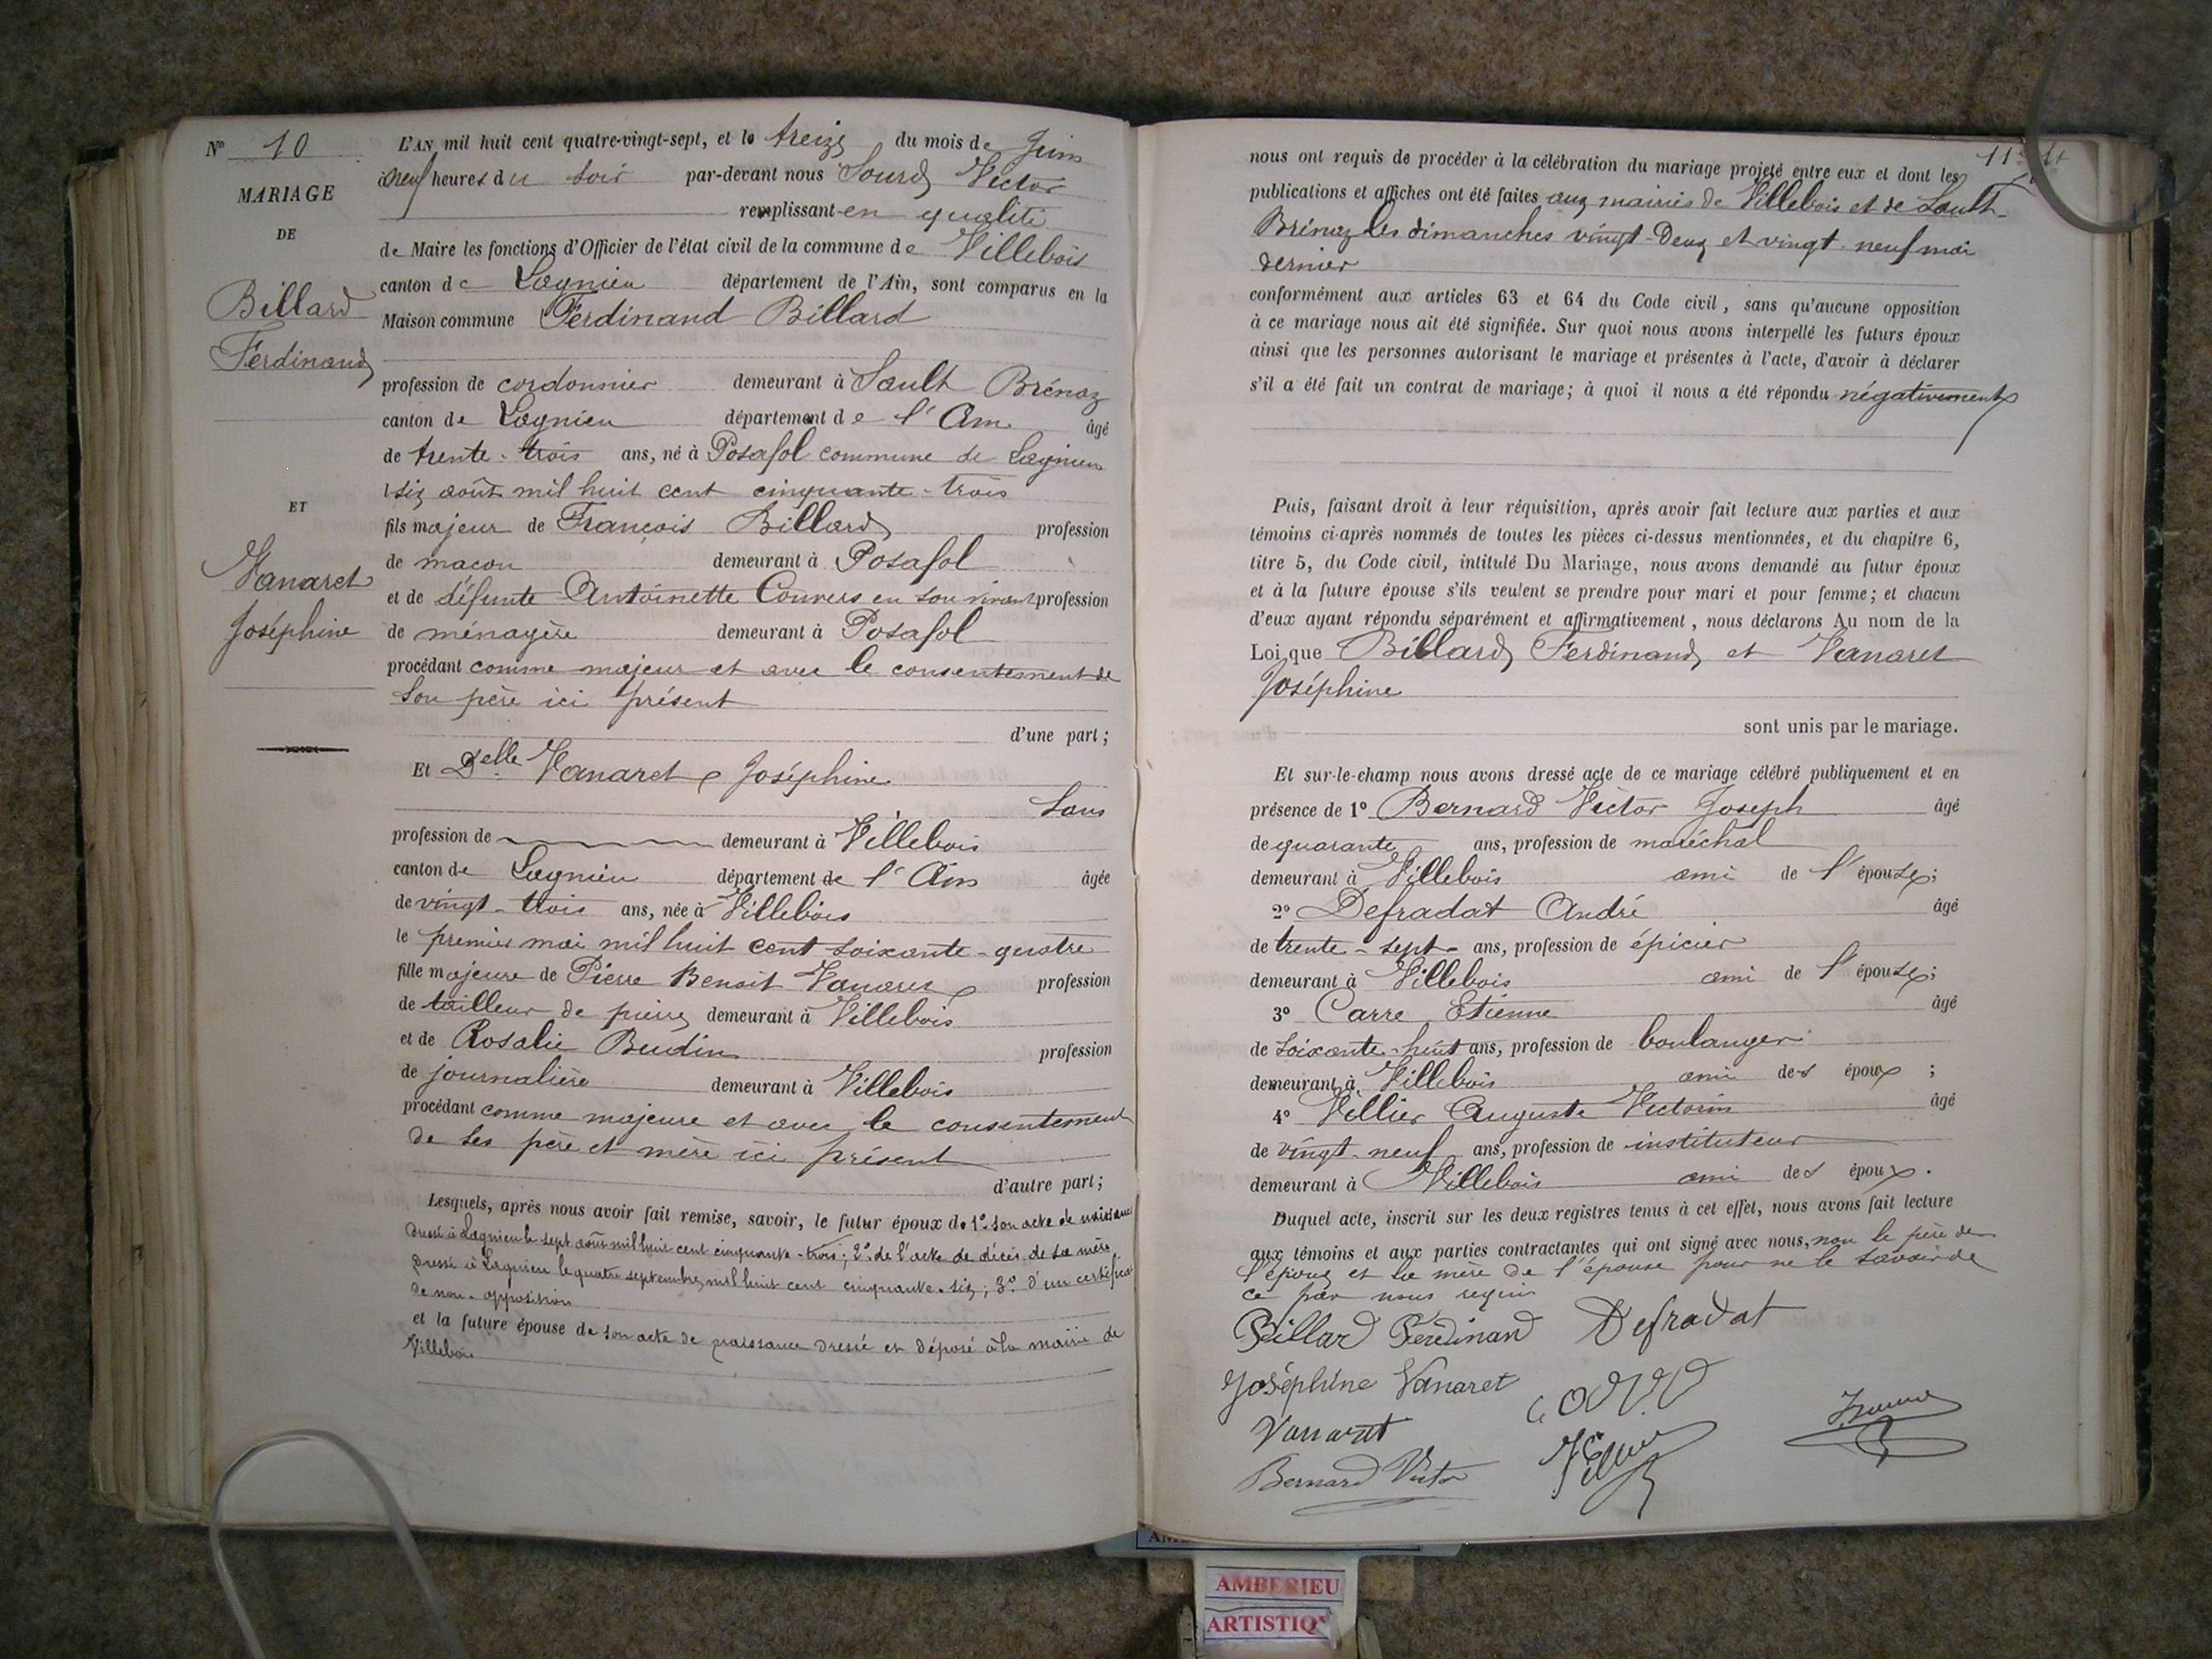 N° 10
MARIAGE
DE
Billard
Ferdinand
ET
Vanaret
Joséphine
L'AN mil huit cent quatre-vingt-sept, et le treize du mois de Juin
à neuf heures du soir par-devant nous Sourd Victor
remplissant en qualité
de Maire les fonctions d'Officier de l'état civil de la commune de Villebois
canton de Lagnieu département de l'Ain, sont comparus en la
Maison commune Ferdinand Billard
profession de cordonnier demeurant à Sault Brénaz
canton de Lagnieu département de l'Ain âgé
de trente-trois ans, né à Posafol commune de Lagnieu
six août mil huit cent cinquante-trois
fils majeur de François Billard profession
de maçon demeurant à Posafol
et de défunte Antoinette Convers en son vivant profession
de ménagère demeurant à Posafol
procédant comme majeur et avec le consentement de
son père ici présent
d'une part;
Et Delle Vanaret Joséphine
sans
profession de demeurant à Villebois
canton de Lagnieu département de l'Ain âgée
de vingt-trois ans, née à Villebois
le premier mai mil huit cent soixante-quatre
fille majeure de Pierre Benoit Vanaret profession
de tailleur de pierre demeurant à Villebois
et de Rosalie Beudin profession
de journalière demeurant à Villebois
procédant comme majeure et avec le consentement
de ses père et mère ici présent
d'autre part;
Lesquels, après nous avoir fait remise, savoir, le futur époux de 1° son acte de naissance
dressé à Lagnieu le sept août mil huit cent cinquante-trois; 2° de l'acte de décès de sa mère
dressé à Lagnieu le quatre septembre mil huit cent cinquante-six; 3° d'un certificat
de non-opposition
et la future épouse de son acte de naissance dressé et déposé à la mairie de
Villebois
nous ont requis de procéder à la célébration du mariage projeté entre eux et dont les
publications et affiches ont été faites aux mairies de Villebois et de Sault-
Brénaz les dimanches vingt-deux et vingt-neuf mai
dernier
conformément aux articles 63 et 64 du Code civil, sans qu'aucune opposition
à ce mariage nous ait été signifiée. Sur quoi nous avons interpellé les futurs époux
ainsi que les personnes autorisant le mariage et présentes à l'acte, d'avoir à déclarer
s'il a été fait un contrat de mariage; à quoi il nous a été répondu négativement
Puis, faisant droit à leur réquisition, après avoir fait lecture aux parties et aux
témoins ci-après nommés de toutes les pièces ci-dessus mentionnées, et du chapitre 6,
titre 5, du Code civil, intitulé Du Mariage, nous avons demandé au futur époux
et à la future épouse s'ils veulent se prendre pour mari et pour femme; et chacun
d'eux ayant répondu séparément et affirmativement, nous déclarons Au nom de la
Loi que Billard Ferdinand et Vanaret
Joséphine
sont unis par le mariage.
Et sur-le-champ nous avons dressé acte de ce mariage célébré publiquement et en
présence de 1° Bernard Victor Joseph âgé
de quarante ans, profession de maréchal
demeurant à Villebois ami de l'épouse;
2° Defradat André âgé
de trente-sept ans, profession de épicier
demeurant à Villebois ami de l'épouse;
3° Carre Etienne âgé
de soixante-huit ans, profession de boulanger
demeurant à Villebois ami des époux;
4° Villier Auguste Victorin âgé
de vingt-neuf ans, profession de instituteur
demeurant à Villebois ami des époux.
Duquel acte, inscrit sur les deux registres tenus à cet effet, nous avons fait lecture
aux témoins et aux parties contractantes qui ont signé avec nous, non le père de
l'époux et la mère de l'épouse pour ne le savoir de
ce par nous requis
Billard Ferdinand Defradat
Joséphine Vanaret
Vanaret
Bernard Victor
AMBERIEU
ARTISTIQ